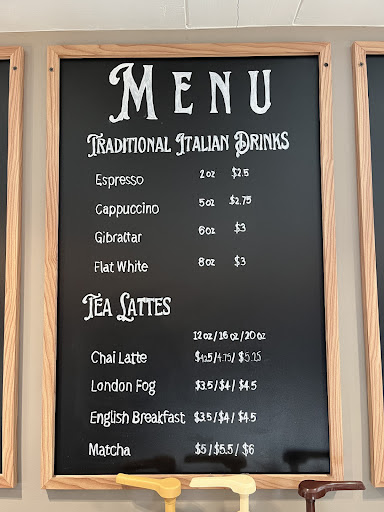 MENU
TRADITIONAL ITALIAN DRINKS
Espresso 2 oz $2.5
Cappuccino 5 oz $2.75
Gibraltar 6 oz $3
Flat White 8 oz $3
TEA LATTES
12 oz / 16 oz / 20 oz
Chai Latte /4.75/ $5.25
London Fog $3.5 / $4 / $4.5
English Breakfast $3.5 / $4 / $4.5
Matcha $5 / $5.5 / $6